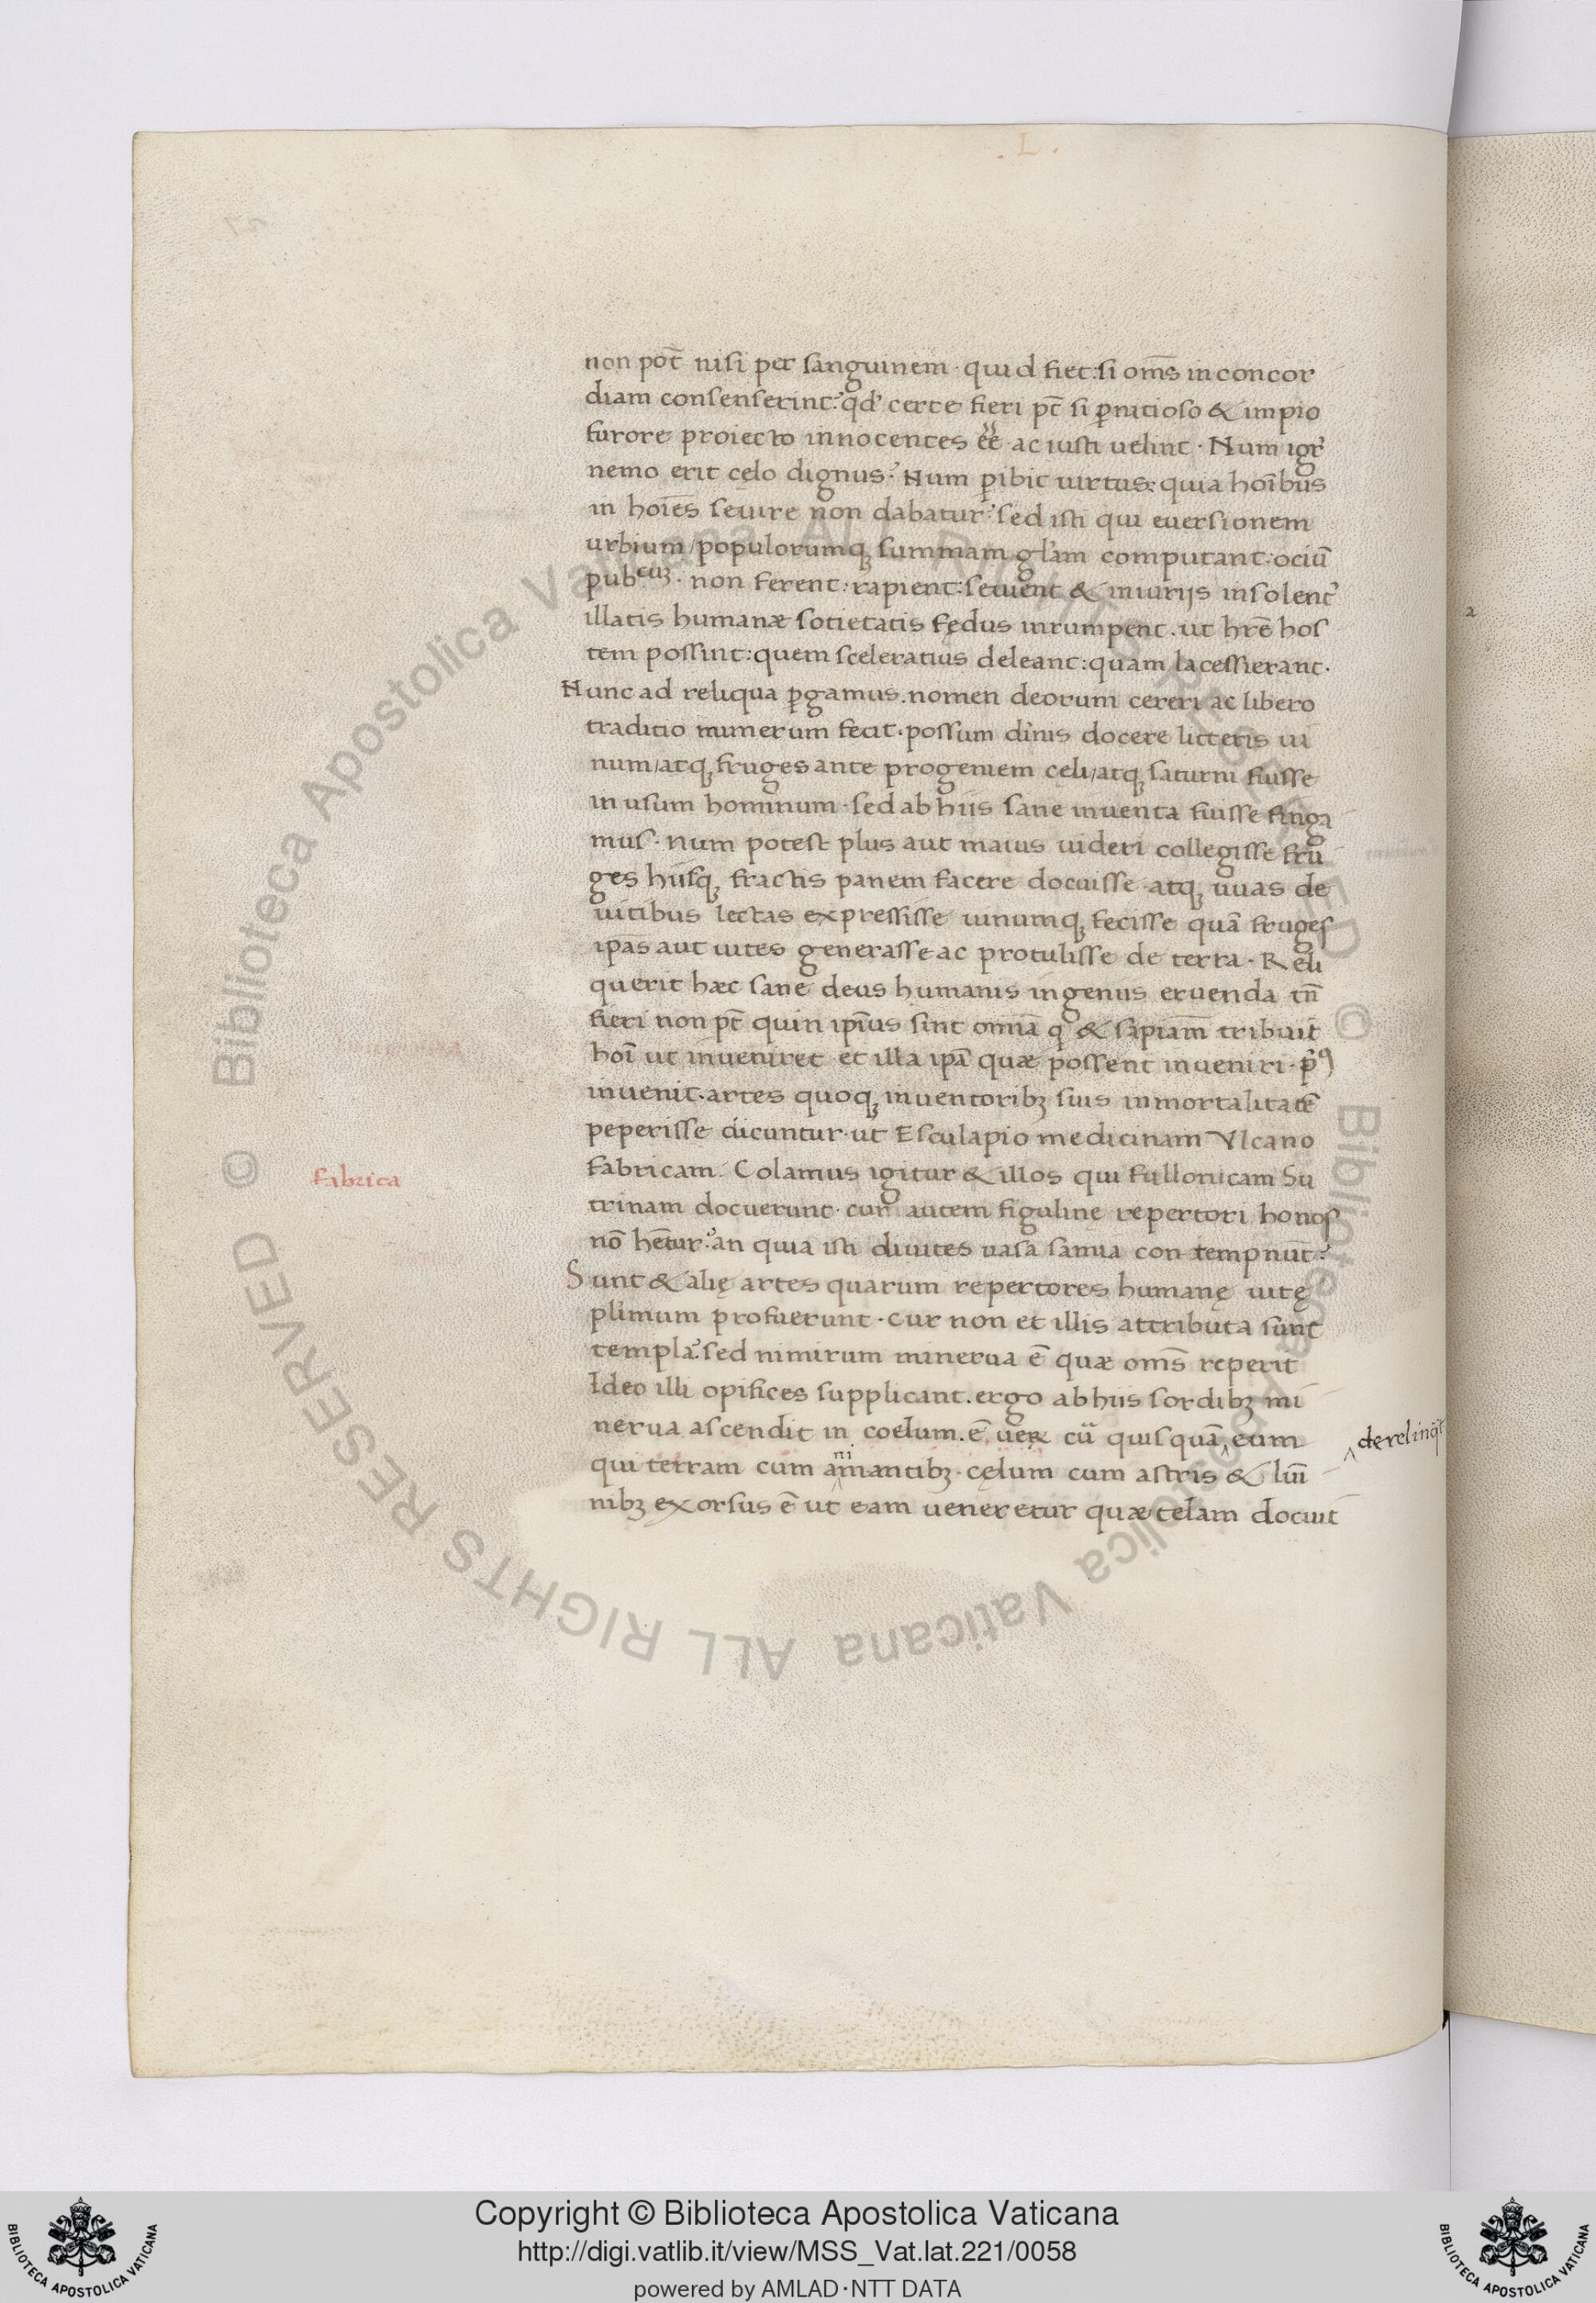 . L .
non pot̄ nisi per sanguinem · quid fiet: si om̄s in concor
diam consenserint? qd̓ certe fieri pt̄ si ꝑnitioso & impio
furore proiecto innocentes eē · ac iusti uelint · Num igr̓
nemo erit cęlo dignus? Num ꝑibit uirtus: quia hoībus
in hoīes seuire non dabatur? sed isti qui euersionem
urbium / populorumqꝫ summam gl̓am computant: ociū
pubᶜᵘꝫ · non ferent: rapient: seuient & iniurijs insolent̓
illatis humanæ sotietatis fędus inrumpent . ut hr̄e hos
tem possint: quem sceleratius deleant: quam lacessierant .
Nunc ad reliqua ꝑgamus . nomen deorum cereri ac libero
traditio munerum fecit · possum diīnis docere litteris ui
num / atqꝫ fruges ante progeniem cęli / atqꝫ saturni fuisse
in usum hominum · sed ab hiis sane inuenta fuisse finga
mus · num potest plus aut maius uideri collegisse fru
ges hiisqꝫ fractis panem facere docuisse · atqꝫ uuas de
uitibus lectas expressisse uinumqꝫ fecisse quā fruges
ip̄as aut uites generasse ac protulisse de terra · Reli
querit hæc sane deus humanis ingeniis eruenda tn̄
fieri non pt̄ quin ip̄ius sint omīa q & sapiam̄ tribuit
hoī ut inueniret et illa ip̄a quæ possent inueniri · pͥꝰ
inuenit · artes quoqꝫ inuentoribꝫ suis inmortalitatē
peperisse dicuntur · ut Esculapio medicinam Vlcano
fabricam . Colamus igitur & illos qui fullonicam Su
fabrica
trinam docuerunt · cur autem figulinę repertori honos
nō hētur? an quia isti diuites uasa samia contempnūt?
Sunt & alię artes quarum repertores humanę uitę
pl̓imum profuerunt · cur non et illis attributa sunt
templa? sed nimirum minerua ē quæ om̄s reperit
Ideo illi opifices supplicant . ergo ab hiis sordibꝫ mi
nerua ascendit in coelum . ē ueꝝ cū quisquā ‸ eum
‸ derelinqͥt
qui terram cum a‸mantibꝫ · cęlum cum astris & luī
ni
nibꝫ exorsus ē ut eam ueneretur quæ telam docuit
2
Copyright © Biblioteca Apostolica Vaticana
http://digi.vatlib.it/view/MSS_Vat.lat.221/0058
powered by AMLAD·NTT DATA
BIBLIOTECA APOSTOLICA VATICANA
BIBLIOTECA APOSTOLICA VATICANA
© Biblioteca Apostolica Vaticana ALL RIGHTS RESERVED
© Biblioteca Apostolica Vaticana ALL RIGHTS RESERVED